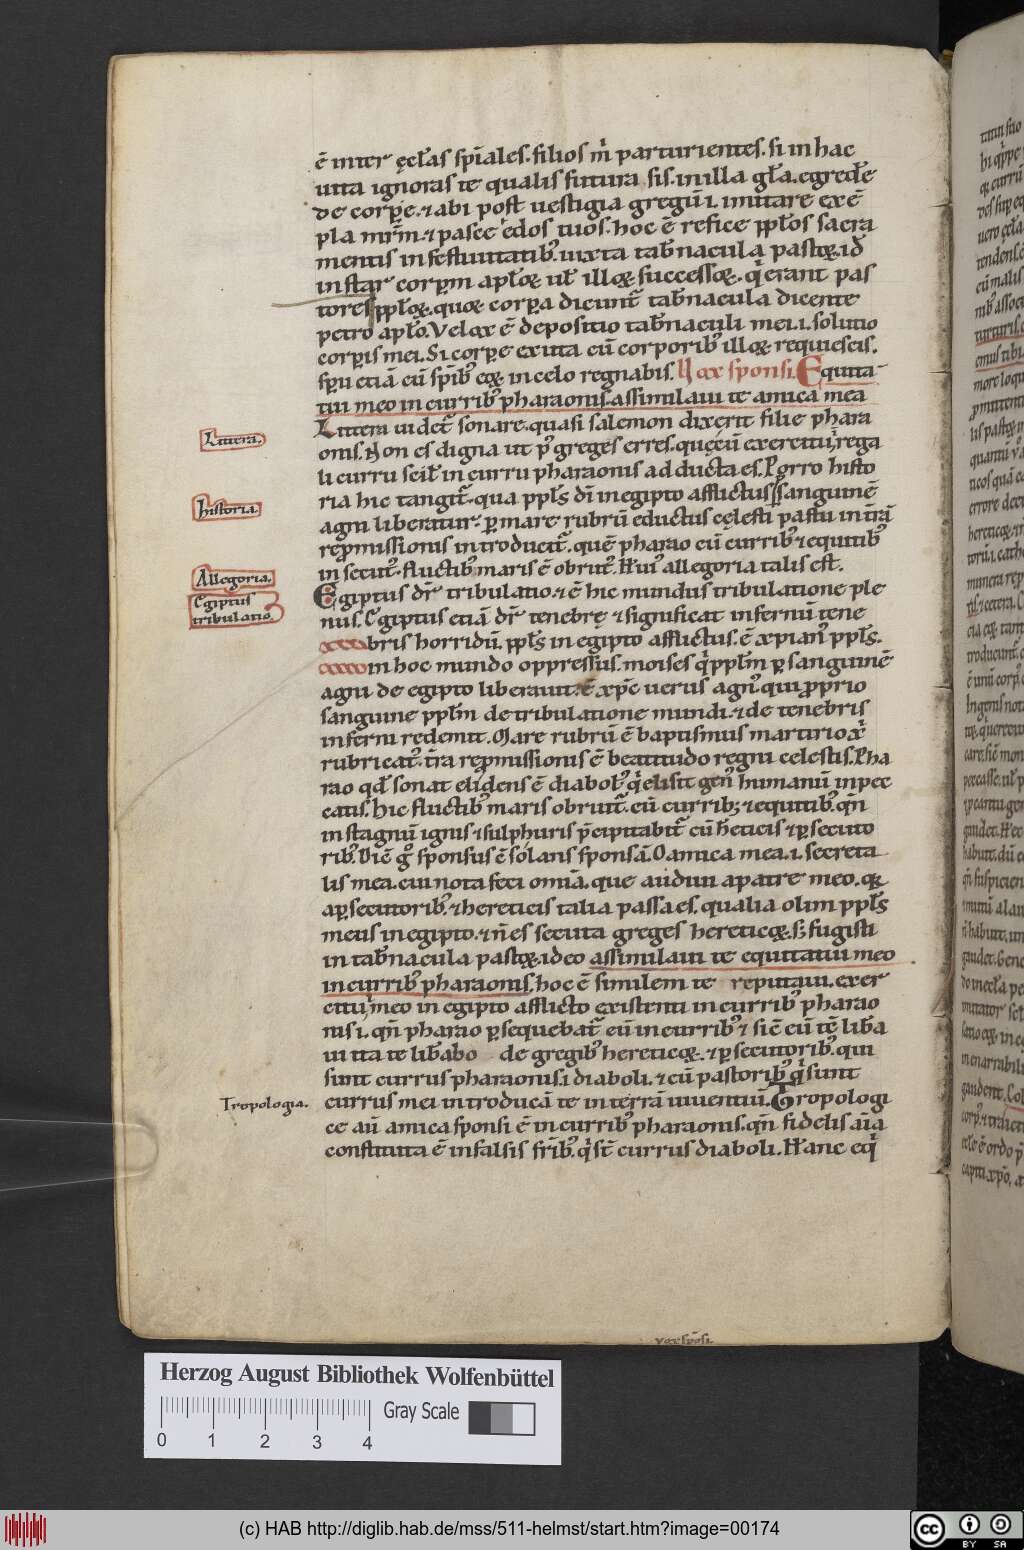 ē inter ęcłas sp̄iales. filios m̄ parturientes. si in hac
uita ignoras te qualis futura sis. in illa gła. egrede
de corpe. ⁊ abi post uestigia gregū .i. imitare exē
pla mr̄m. ⁊ pasce edos tuos. hoc ē refice pplos sacra
mentis in festiuitatibꝰ. iuxta tab̄nacula pastoꝝ. id
instar corpꝛm aploꝝ uł illoꝝ successoꝝ. qͥ erant pas
tores pploꝝ. quoꝝ corpa dicunt̄ tab̄nacula dicente
petro aplo. Velox ē depositio tab̄naculi mei .i. solutio
corpis mei. Si corpe exuta cū corporibꝰ illoꝝ requiescis.
spu etiā cū sp̄ibꝰ eoꝝ in celo regnabis. Vox sponsi. Equita
tui meo in curribꝰ pharaonis. assimilaui te amica mea
Littera uidet̄ sonare. quasi salemon dixerit filie phara
onis. Non es digna ut p̱ greges erres. que cū exercitu rega
li curru scił in curru pharaonis adducta es. Porro histo
ria hic tangit̄. qua ppls dī in egipto afflictus sanguine
agni liberatur. p̱ mare rubrū eductus celesti pastu in t̄rā
repromissionis introducit̄. quē pharao cū curribꝰ ⁊ equitibꝰ
insecutꝰ. fluctibꝰ maris ē obrutꝰ. Huiꝰ allegoria talis est.
Egiptus dr̄ tribulatio. ⁊ ē hic mundus tribulatione ple
nus. Egiptus etiā dr̄ tenebrę ⁊ significat infernū tene
bris horridū. ppls in egipto afflictus. ē xpianꝰ ppls.
in hoc mundo oppressus. moises qͥ pplm p̱ sanguinē
agni de egipto liberauit. ē xp̄c uerus agnꝰ qui proprio
sanguine pplm de tribulatione mundi. ⁊ de tenebris
inferni redemit. Mare rubrū ē baptismus martirio xͥ
rubricatꝰ. t̄ra repromissionis ē beatitudo regni celestis. Pha
rao qd̄ sonat elidens ē diabolꝰ qͥ elisit genꝰ humanū in pec
catis. hic fluctibꝰ maris obruit̄ cū curribꝫ ⁊ equitibꝰ. qn̄
in stagnū ignis ⁊ sulphuris p̄cipitabit̄ cū h̄eticis ⁊ p̱secuto
ribꝰ. Dic̄ gͦ sponsus c̄solans sponsā. O amica mea .i. secreta
lis mea. cui nota feci omīa. que audiui a patre meo. qꝛ
a p̱secutoribꝰ ⁊ hereticis talia passa es. qualia olim ppls
meus in egipto. ⁊ n̄ es secuta greges hereticoꝝ. sꝫ fugisti
in tab̄nacula pastoꝝ. ideo assimilaui te equitatui meo
in curribꝰ pharaonis. hoc ē similem te reputaui. exer
citui meo in egipto afflicto existenti in curribꝰ pharao
nis .i. qn̄ pharao p̱sequebat̄ eū in curribꝰ ⁊ sic̄ eū tc̄ lib̄a
ui ita te lib̄abo de gregibꝰ hereticoꝝ. ⁊ p̱secutoribꝰ. qui
sunt currus pharaonis .i. diaboli. ⁊ cū pastoribꝰ qͥ sunt
currus mei introducā te in terrā uiuentiū. Tropologi
ce aū amica sponsi ē in curribꝰ pharaonis. qn̄ fidelis aīa
constituta ē in falsis fribꝰ. qͥ st̄ currus diaboli. Hanc eqͥ
Littera.
historia.
Allegoria.
Egiptus
tribulatio.
Tropologia.
Herzog August Bibliothek Wolfenbüttel
0 1 2 3 4
Gray Scale
(c) HAB http://diglib.hab.de/mss/511-helmst/start.htm?image=00174
cc BY SA